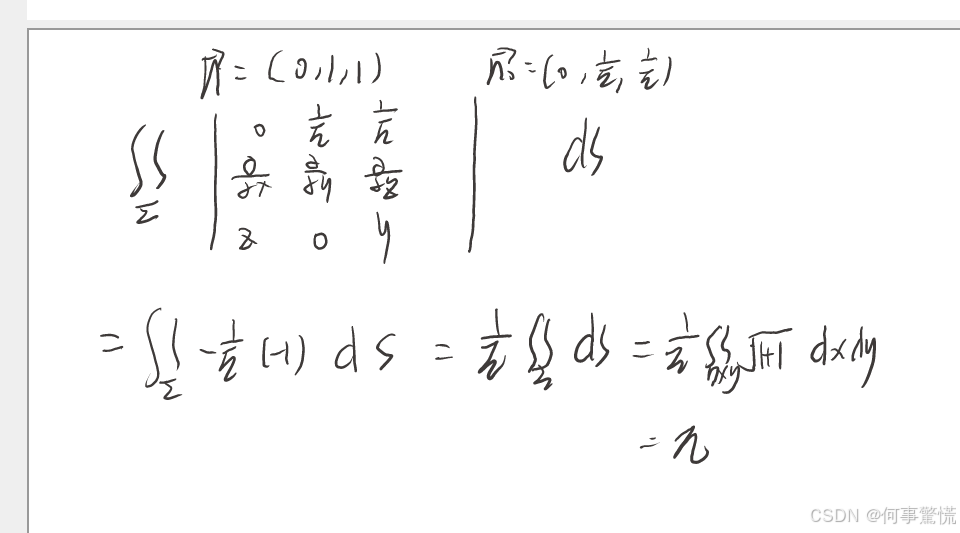 n⃗ = (0,1,1)  n⃗₀ = (0, 1/√2, 1/√2)
∬_Σ | 0  1/√2  1/√2 | dS
| ∂/∂x  ∂/∂y  ∂/∂z |
| z  0  y |
= ∬_Σ -1/√2 (-1) dS = 1/√2 ∬_Σ dS = 1/√2 ∬_Dxy √1+1 dxdy
= π
CSDN @何事驚慌